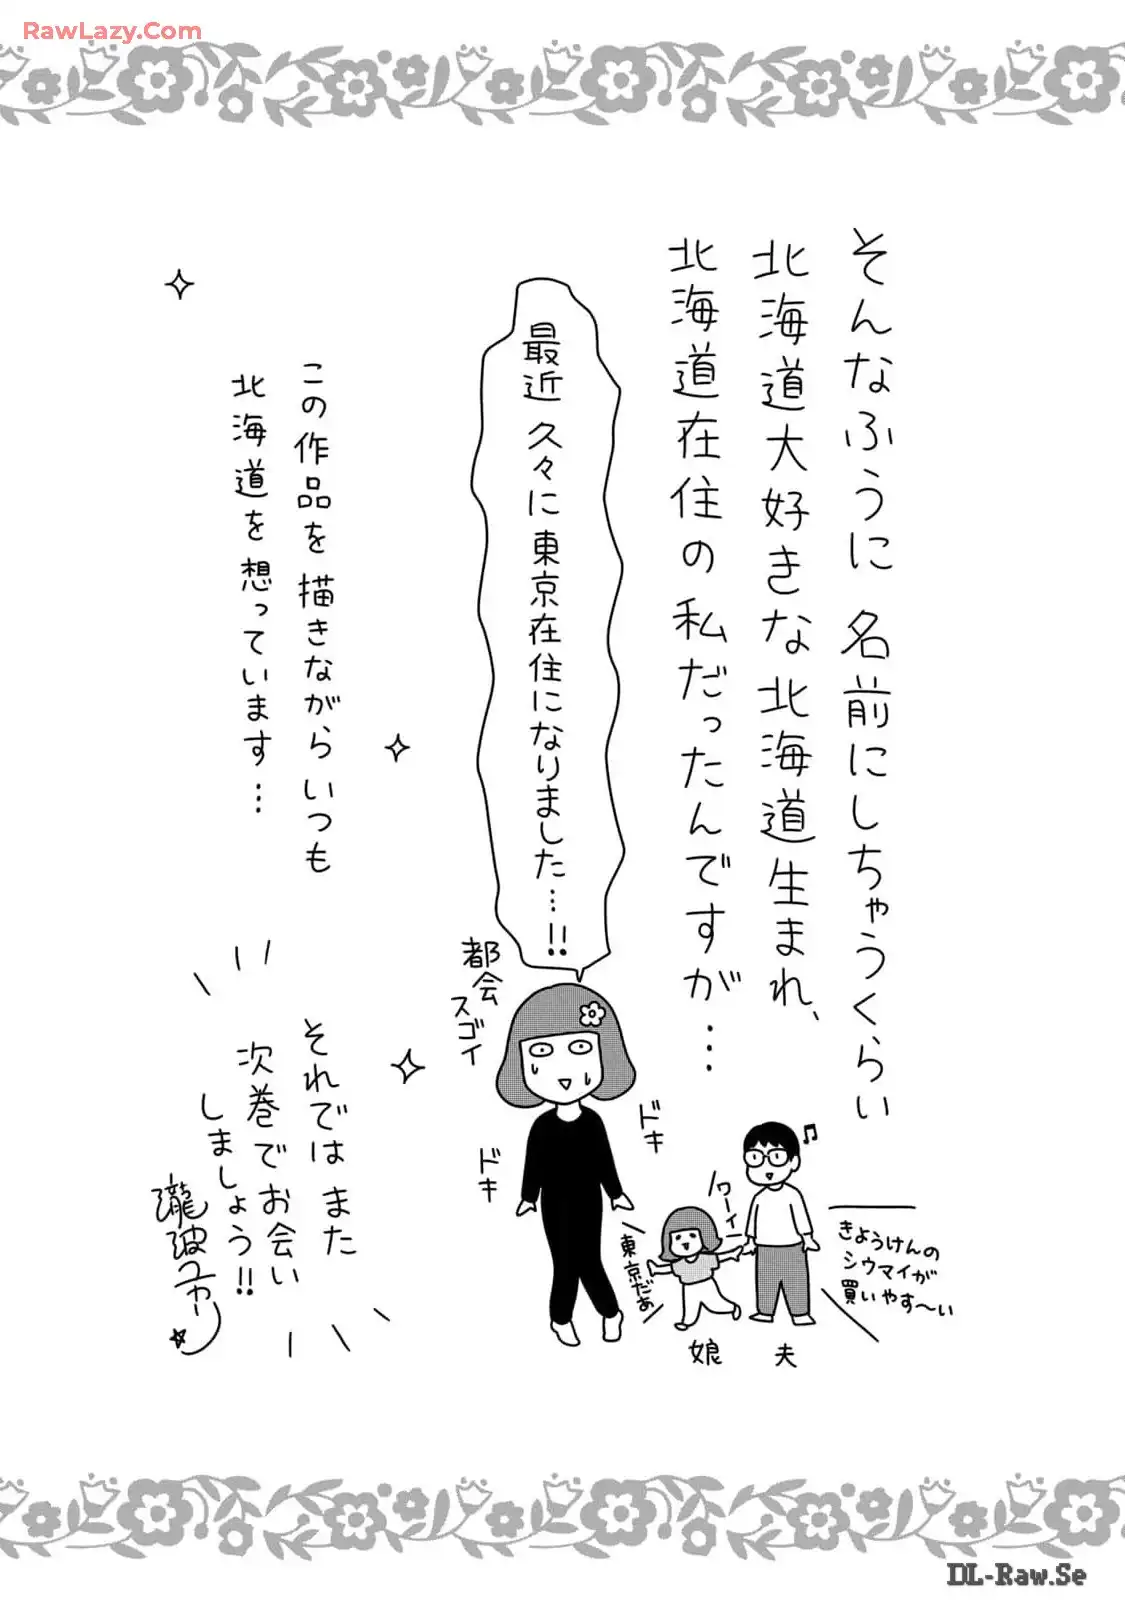 RawLazy.Com
そんなふうに名前にしちゃうくらい
北海道大好きな北海道生まれ、
北海道在住の私だったんですが…
最近久々に東京在住になりました…!!
都会
スゴイ
ドキ
ドキ
東京だぁ
ワーイ
♪
きようけんの
シウマイが
買いやす〜い
娘
夫
この作品を描きながらいつも
北海道を想っています…
それではまた
次巻でお会い
しましょう!!
瀧波ユカリ
DL-Raw.Se